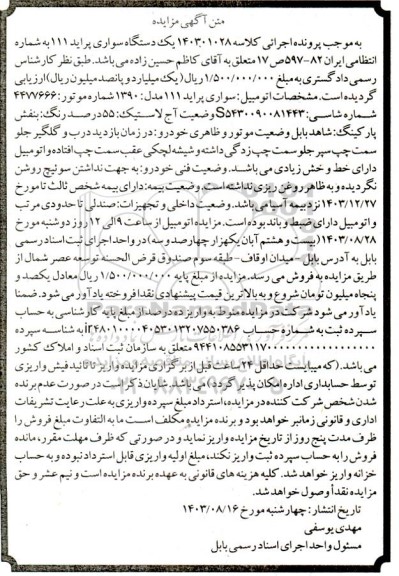 متن آگهی مزایده
به موجب پرونده اجرائی کلاسه ۱۴۰۳۰۱۰۲۸ یک دستگاه سواری پراید ۱۱۱ به شماره
انتظامی ایران ۸۲-۵۹۷ص۱۷ متعلق به آقای کاظم حسین زاده می باشد. طبق نظر کارشناس
رسمی دادگستری به مبلغ ۱/۵۰۰/۰۰۰/۰۰۰ ریال (یک میلیارد و پانصد میلیون ریال) ارزیابی
گردیده است. مشخصات اتومبیل: سواری پراید ۱۱۱ مدل: ۱۳۹۰ شماره موتور: ۴۴۷۷۶۶۶
شماره شاسی: S۵۴۳۰۰۹۰۰۸۱۴۴۳ وضعیت آج لاستیک: ۵۵ درصد رنگ: بنفش
پارکینگ: شاهد بابل وضعیت موتور و ظاهری خودرو: در زمان بازدید درب و گلگیر جلو
سمت چپ سپر جلو سمت چپ زدگی داشته و شیشه لچکی عقب سمت چپ افتاده و اتومبیل
دارای خط و خش زیادی می باشد. وضعیت فنی خودرو: به جهت نداشتن سوئیچ روشن
نگردیده و به ظاهر روغن ریزی نداشته است. وضعیت بیمه: دارای بیمه شخص ثالث تا مورخ
۱۴۰۳/۱۲/۲۷ نزد بیمه آسیا می باشد. وضعیت داخلی و تجهیزات: صندلی تا حدودی مرتب
و اتومبیل دارای ضبط و باند بوده است. مزایده اتومبیل از ساعت ۹ الی ۱۲ روز دوشنبه مورخ
۱۴۰۳/۰۸/۲۸ (بیست و هشتم آبان یکهزار چهارصد و سه) در واحد اجرای ثبت اسناد رسمی
بابل به آدرس بابل - میدان اوقاف - طبقه سوم صندوق قرض الحسنه توسعه عصر شمال از
طریق مزایده به فروش می رسد. مزایده از مبلغ پایه ۱/۵۰۰/۰۰۰/۰۰۰ ریال معادل یکصد و
پنجاه میلیون تومان شروع و به بالاترین قیمت پیشنهادی نقدا فروخته یادآور می شود. ضمنا
یادآور می شود شرکت در مزایده منوط به واریز ده درصد از مبلغ پایه کارشناسی به حساب
سپرده ثبت به شماره حساب ir۴۸۰۱۰۰۰۰۴۰۵۳۰۱۳۲۰۷۵۵۰۳۸۶ به شناسه سپرده
متعلق به سازمان ثبت اسناد و املاک کشور
می باشد. (که میبایست حداقل ۲۴ ساعت قبل از برگزاری مزایده واریز تا تائید فیش واریزی
توسط حسابداری اداره امکان پذیر گردد) می باشد. شایان ذکر است در صورت عدم برنده
شدن شخص شرکت کننده در مزایده، استرداد مبلغ سپرده واریزی به علت رعایت تشریفات
اداری و قانونی زمانبر خواهد بود و برنده مزایده مکلف است ما به التفاوت مبلغ فروش را
ظرف مدت پنج روز از تاریخ مزایده واریز نماید و در صورتی که ظرف مهلت مقرر، مانده
فروش را به حساب سپرده ثبت واریز نکند، مبلغ اولیه واریزی قابل استرداد نبوده و به حساب
خزانه واریز خواهد شد. کلیه هزینه های قانونی به عهده برنده مزایده است و نیم عشر و حق
مزایده نقداً وصول خواهد شد.
تاریخ انتشار: چهارشنبه مورخ ۱۴۰۳/۰۸/۱۶
مهدی یوسفی
مسئول واحد اجرای اسناد رسمی بابل